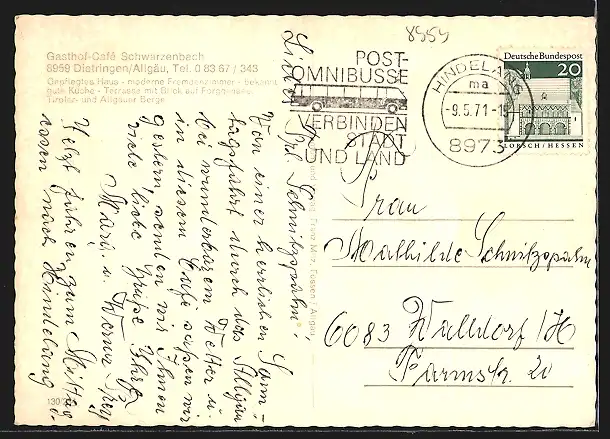 8959
Gasthof-Café Schwarzenbach
8959 Dietringen/Allgäu, Tel. 0 83 67 / 343
Gepflegtes Haus - moderne Fremdenzimmer - bekannt
gute Küche - Terrasse mit Blick auf Forggensee,
Tiroler- und Allgäuer Berge
POST-
OMNIBUSSE
VERBINDEN
STADT
UND LAND
HINDELANG
ma
-9.5.71-18
8973
Deutsche Bundespost
20
LORSCH/HESSEN
Liebe Frl. Schnitzspahn!
Von einer herrlichen Sonn=
tagsfahrt durch das Allgäu
bei wunderbarem Wetter u.
in diesem Café saßen wir
gestern, senden wir Ihnen
viele liebe Grüße Ihre
Marg. u. Werner
Jetzt fahren zum Mittag
essen nach Hindelang
Frau
Mathilde Schnitzspahn
6083 Walldorf/H
Farmstr. 20
Füssen / Allgäu
130/